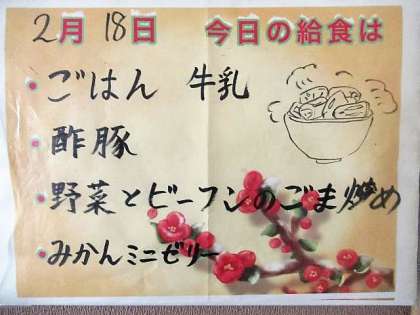 2月 18日 今日の給食は
・ごはん 牛乳
・酢豚
・野菜とビーフンのごま炒め
・みかんミニゼリー